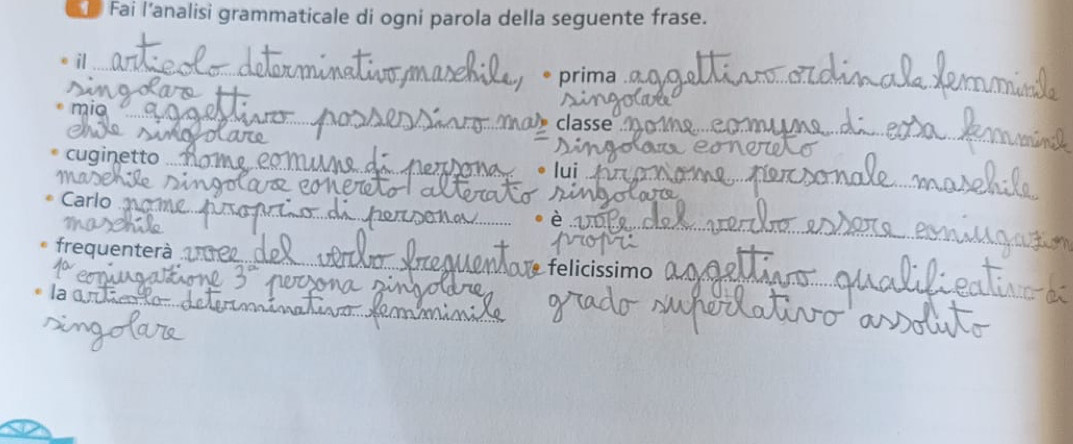 1 Fai l'analisi grammaticale di ogni parola della seguente frase.
• il articolo determinativo, maschile,
singolare
• mio aggettivo possessivo mas
chile singolare
• cuginetto nome comune di persona
maschile singolare concreto alterato
• Carlo nome proprio di persona
maschile
• frequenterà voce del verbo frequentare
1ª coniugazione 3ª persona singolare
• la articolo determinativo femminile
singolare
• prima aggettivo ordinale femminile
singolare
• classe nome comune di cosa femminile
singolare concreto
• lui pronome personale maschile
singolare
• è voce del verbo essere coniugazione
propri
• felicissimo aggettivo qualificativo di
grado superlativo assoluto